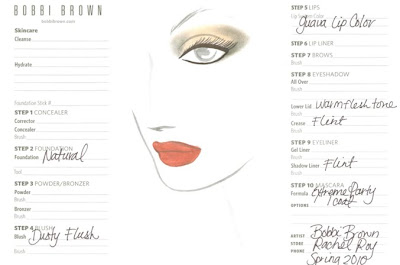 BOBBI BROWN
bobbibrown.com
Skincare
Cleanse
Hydrate
Foundation Stick #
STEP 1 CONCEALER
Corrector
Concealer
Brush
STEP 2 FOUNDATION
Foundation Natural
Tool
STEP 3 POWDER/BRONZER
Powder
Brush
Bronzer
Brush
STEP 4 BLUSH
Blush Dusty Flush
Brush
STEP 5 LIPS
Guava Lip Color
STEP 6 LIP LINER
STEP 7 BROWS
Brush
STEP 8 EYESHADOW
All Over
Brush
Lower Lid Warm flesh tone
Crease Flint
Brush
STEP 9 EYELINER
Gel Liner
Brush
Shadow Liner Flint
Brush
STEP 10 MASCARA
Formula Extreme Party
Coat
OPTIONS
ARTIST Bobbi Brown
STORE Rachel Roy
PHONE Spring 2010